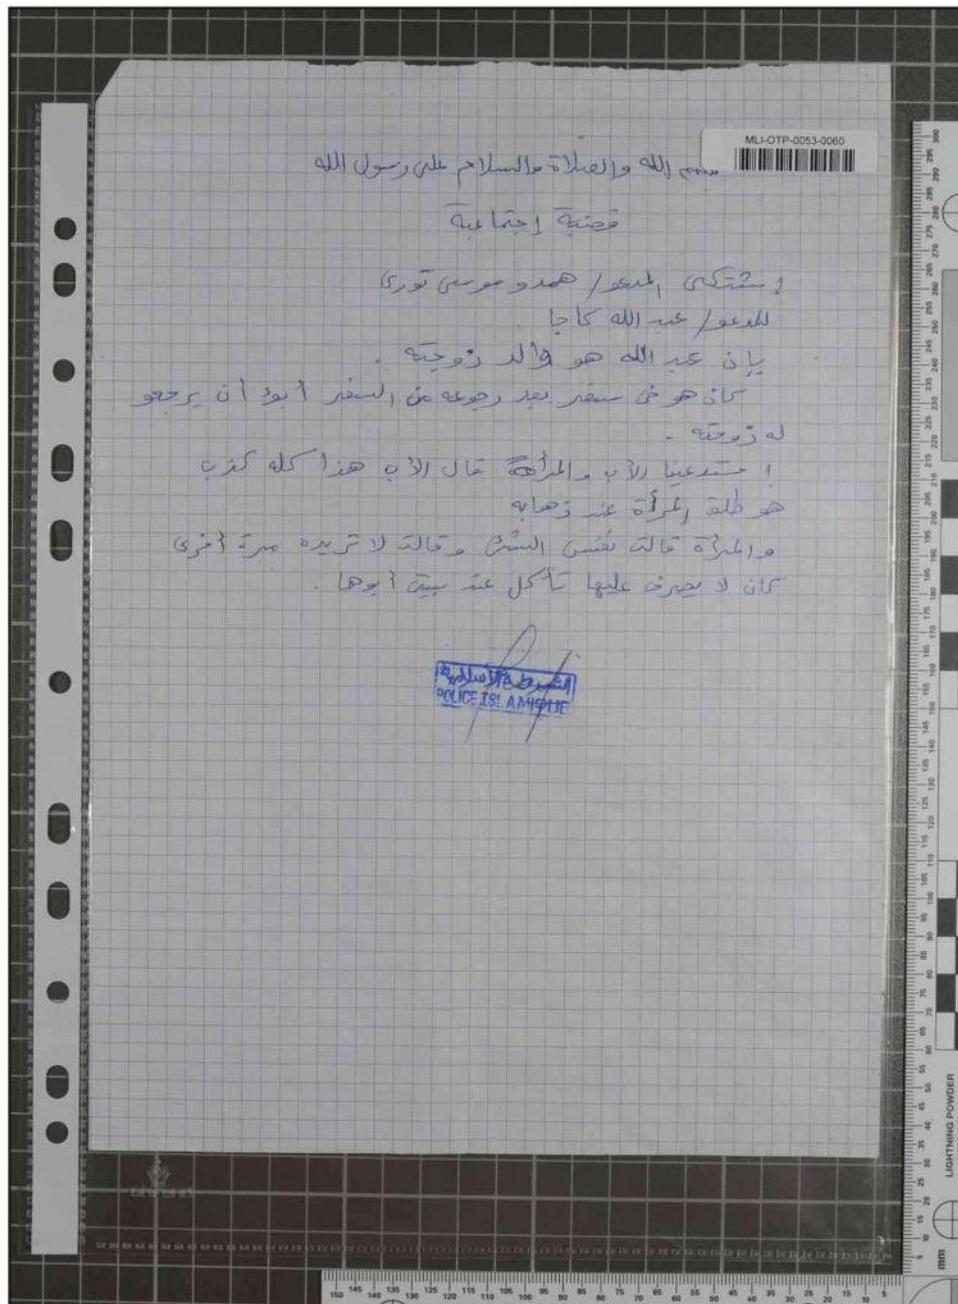 MLI-OTP-0053-0060
بسم الله والصلاة والسلام على رسول الله
قضية إجتماعية
إشتكى المدعو/ همدو موسى توري
للمدعو/ عبد الله كاجا
بإن عبد الله هو والد زوجته .
كان هو في سفر بعد رجوعه من السفر أبوا أن يرجعو
له زوجته .
إستدعينا الأب والمرأة قال الأب هذا كله كذب
هو طلق المرأة عند ذهابه
والمرأة قالت نفس الشئ وقالت لا تريده مرة أخرى
كان لا يصرف عليها تأكل عند بيت أبوها .
الشرطة الإسلامية
POLICE ISLAMIQUE
LIGHTNING POWDER
mm